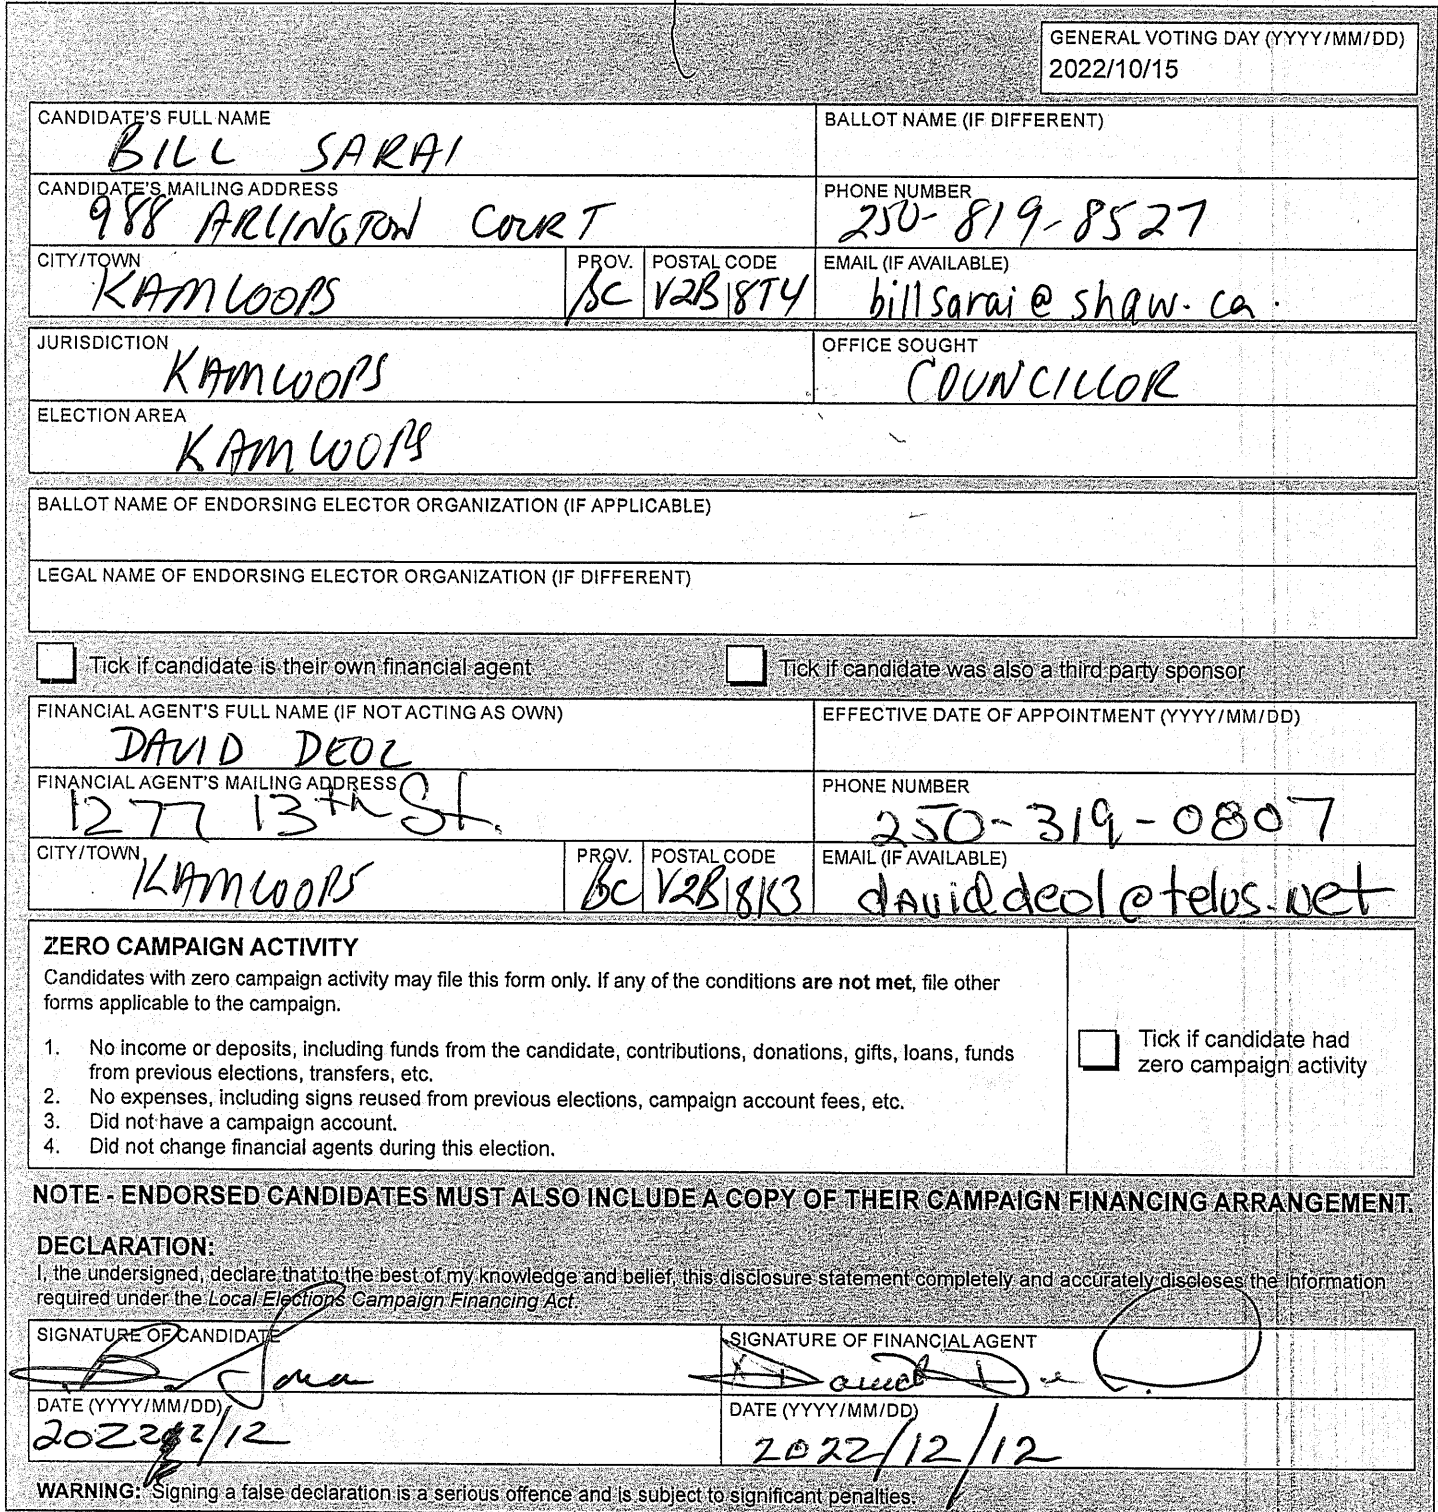 GENERAL VOTING DAY (YYYY/MM/DD)
2022/10/15
CANDIDATE'S FULL NAME
BILL SARAI
BALLOT NAME (IF DIFFERENT)
CANDIDATE'S MAILING ADDRESS
988 ARLINGTON COURT
PHONE NUMBER
250-819-8527
CITY/TOWN
KAMLOOPS
PROV.
BC
POSTAL CODE
V2B 8T4
EMAIL (IF AVAILABLE)
billsarai@shaw.ca.
JURISDICTION
KAMLOOPS
OFFICE SOUGHT
COUNCILLOR
ELECTION AREA
KAMLOOPS
BALLOT NAME OF ENDORSING ELECTOR ORGANIZATION (IF APPLICABLE)
LEGAL NAME OF ENDORSING ELECTOR ORGANIZATION (IF DIFFERENT)
Tick if candidate is their own financial agent
Tick if candidate was also a third party sponsor
FINANCIAL AGENT'S FULL NAME (IF NOT ACTING AS OWN)
DAVID DEOL
EFFECTIVE DATE OF APPOINTMENT (YYYY/MM/DD)
FINANCIAL AGENT'S MAILING ADDRESS
1277 13th St.
PHONE NUMBER
250-319-0807
CITY/TOWN
KAMLOOPS
PROV.
BC
POSTAL CODE
V2B 8K3
EMAIL (IF AVAILABLE)
daviddeol@telus.net
ZERO CAMPAIGN ACTIVITY
Candidates with zero campaign activity may file this form only. If any of the conditions are not met, file other
forms applicable to the campaign.
1. No income or deposits, including funds from the candidate, contributions, donations, gifts, loans, funds
from previous elections, transfers, etc.
2. No expenses, including signs reused from previous elections, campaign account fees, etc.
3. Did not have a campaign account.
4. Did not change financial agents during this election.
Tick if candidate had
zero campaign activity
NOTE - ENDORSED CANDIDATES MUST ALSO INCLUDE A COPY OF THEIR CAMPAIGN FINANCING ARRANGEMENT.
DECLARATION:
I, the undersigned, declare that to the best of my knowledge and belief, this disclosure statement completely and accurately discloses the information
required under the Local Elections Campaign Financing Act.
SIGNATURE OF CANDIDATE
SIGNATURE OF FINANCIAL AGENT
DATE (YYYY/MM/DD)
DATE (YYYY/MM/DD)
2022/12/12
WARNING: Signing a false declaration is a serious offence and is subject to significant penalties.